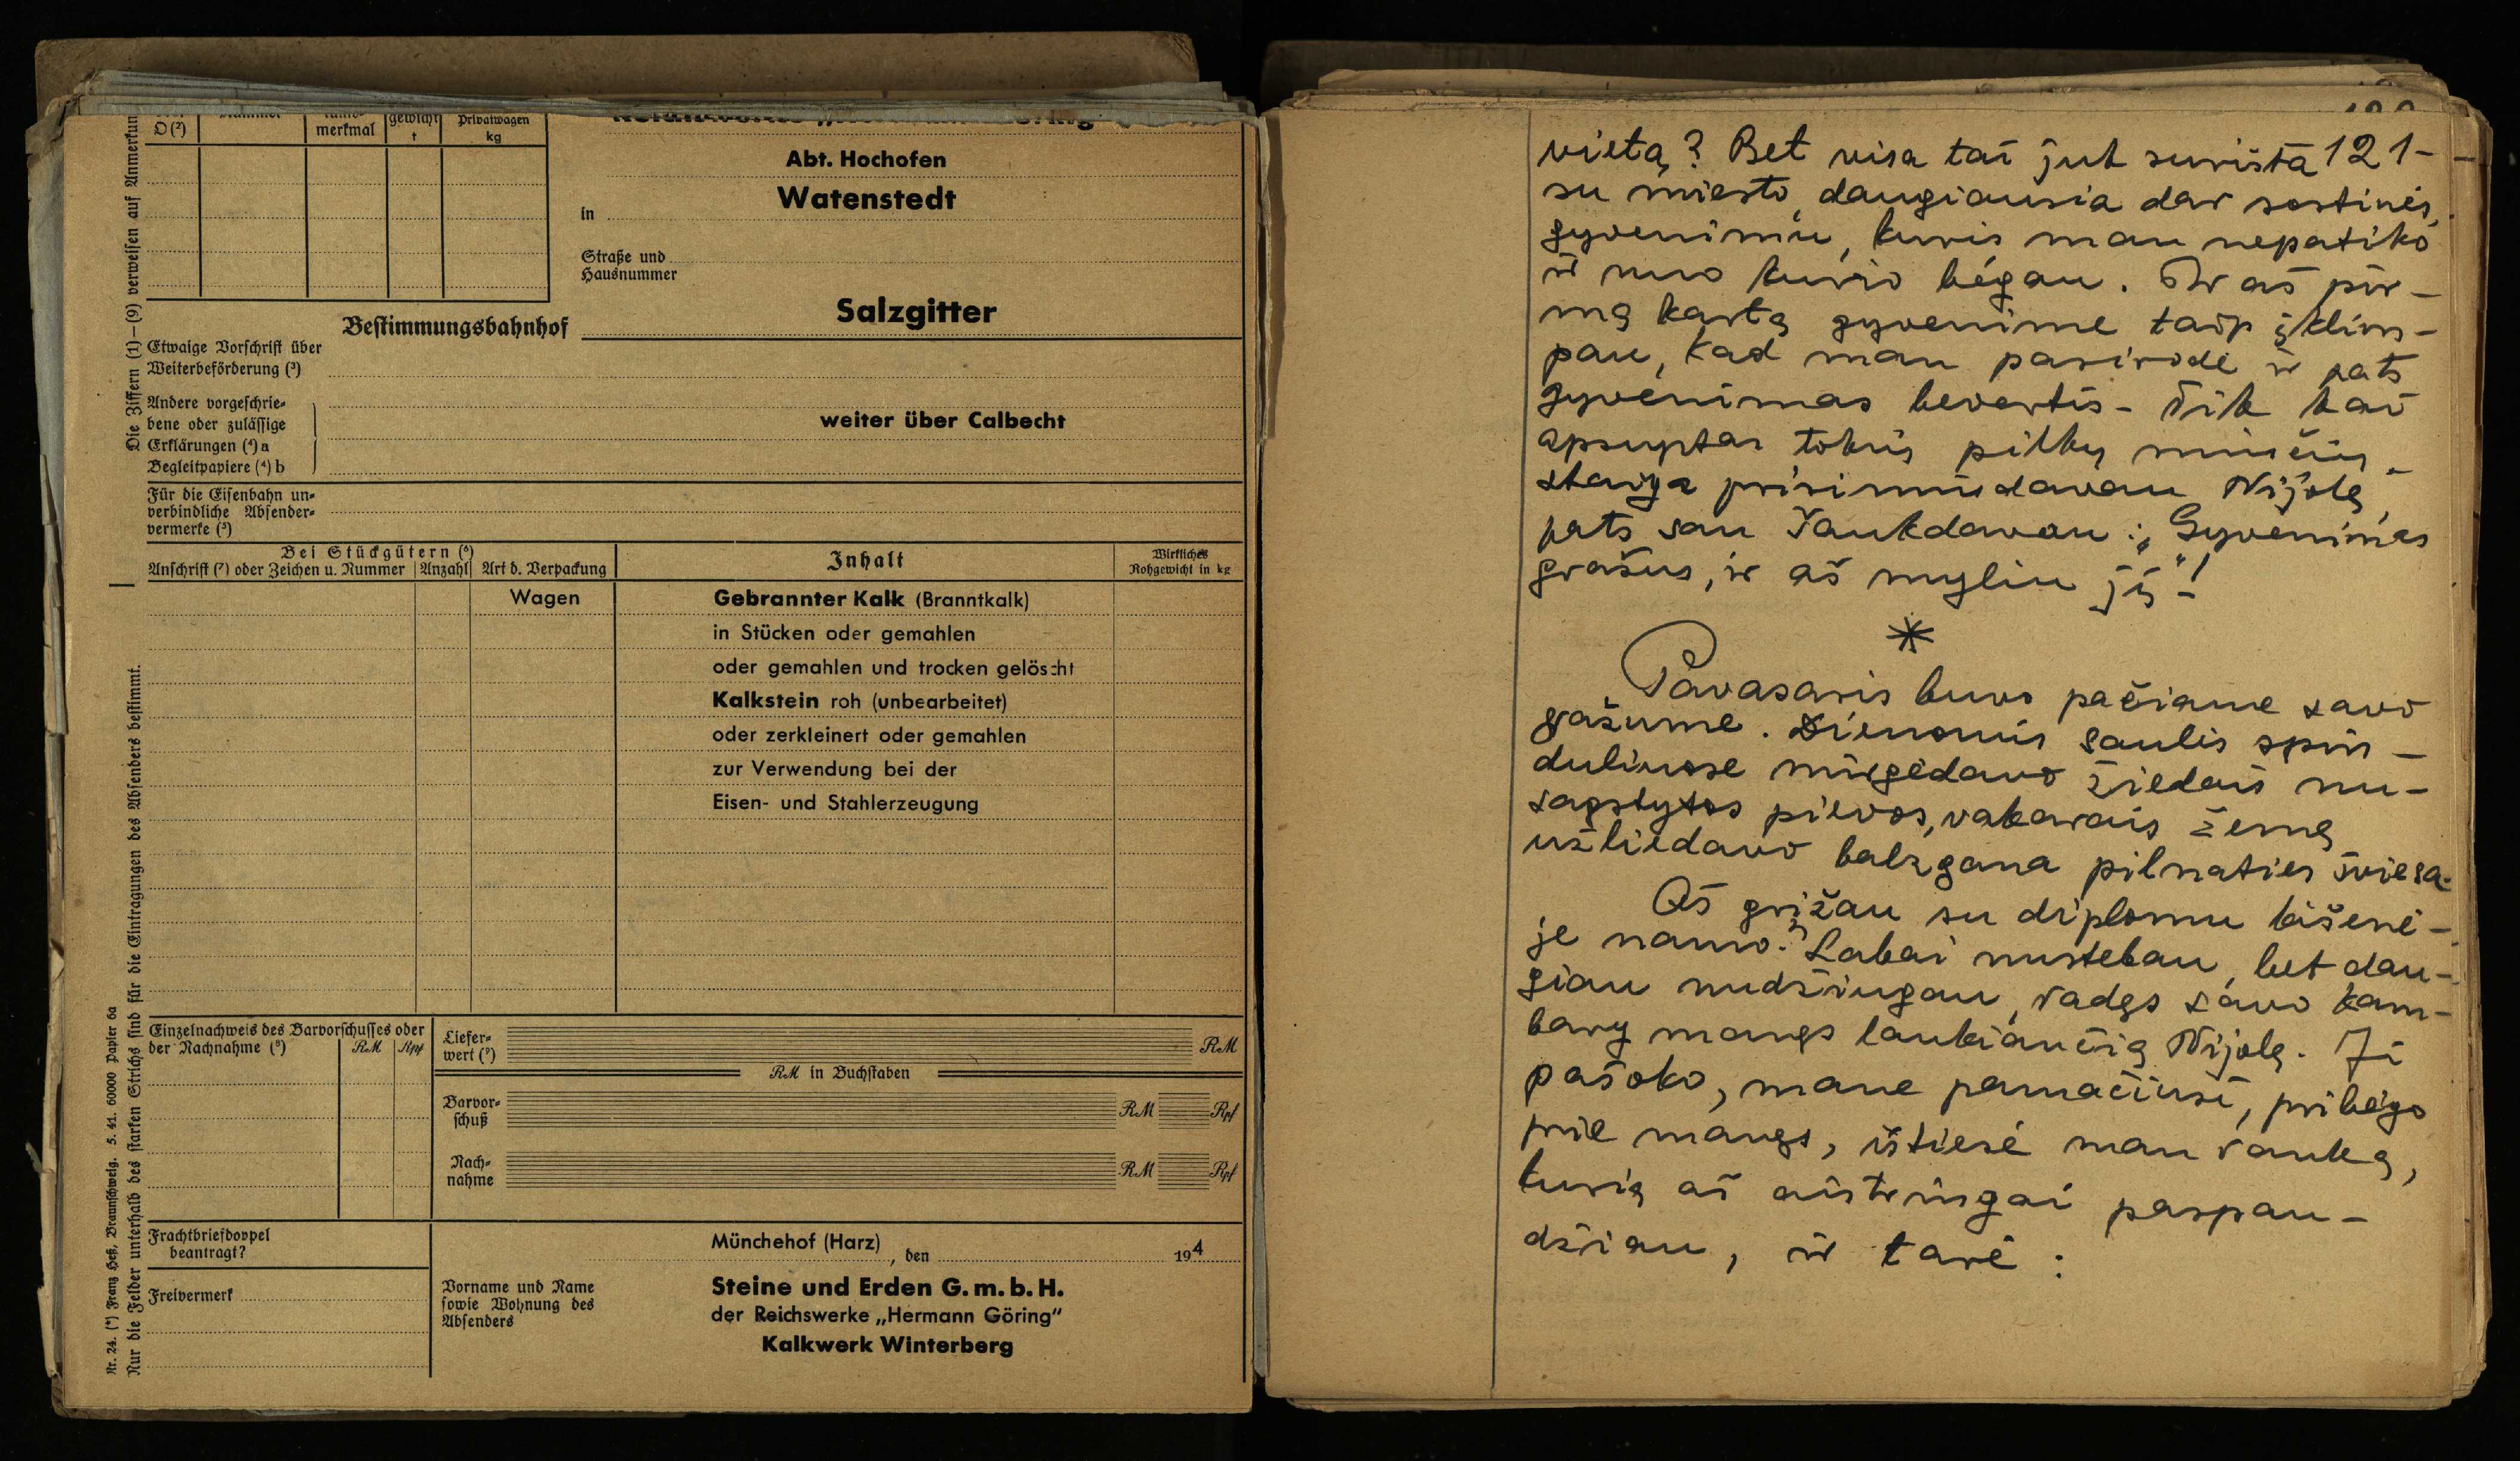 O (²)
merkmal
gewicht
t
Privatwagen
kg
Abt. Hochofen
in Watenstedt
Straße und
Hausnummer
Bestimmungsbahnhof Salzgitter
Etwaige Vorschrift über
Weiterbeförderung (³)
Andere vorgeschrie-
bene oder zulässige
Erklärungen (⁴) a
Begleitpapiere (⁴) b
weiter über Calbecht
Für die Eisenbahn un-
verbindliche Absender-
vermerke (⁵)
Bei Stückgütern (⁶)
Anschrift (⁷) oder Zeichen u. Nummer Anzahl Art d. Verpackung
Inhalt
Wirkliches
Rohgewicht in kg
Wagen Gebrannter Kalk (Branntkalk)
in Stücken oder gemahlen
oder gemahlen und trocken gelöscht
Kalkstein roh (unbearbeitet)
oder zerkleinert oder gemahlen
zur Verwendung bei der
Eisen- und Stahlerzeugung
Einzelnachweis des Barvorschusses oder
der Nachnahme (⁸) RM Rpf
Liefer-
wert (⁹) RM
RM in Buchstaben
Barvor-
schuß RM Rpf
Nach-
nahme RM Rpf
Frachtbriefdoppel
beantragt?
Freivermerk
Münchehof (Harz), den 194
Vorname und Name
sowie Wohnung des
Absenders
Steine und Erden G. m. b. H.
der Reichswerke „Hermann Göring"
Kalkwerk Winterberg
Die Ziffern (1)—(9) verweisen auf Anmerkun
Nur die Felder unterhalb des starken Strichs sind für die Eintragungen des Absenders bestimmt.
Nr. 24. (*) Franz Heß, Braunschweig. 5. 41. 60000 Papier 6a
121-
vietą? Bet visa tai juk surišta
su miesto, daugiausia dar sostinės,
gyvenimu, kuris man nepatiko
ir nuo kurio bėgau. Ir aš pir-
mą kartą gyvenime taip įklim-
pau, kad man pasirodė ir pats
gyvenimas bevertis. Tik kai
apsuptas tokių pilkų minčių
staiga prisimindavau Nijolę,
pats sau šaukdavau: „Gyvenimas
gražus, ir aš myliu jį"!
*
Pavasaris buvo pačiame savo
gražume. Dienomis saulės spin-
duliuose mirgėdavo žiedais nu-
sagstytos pievos, vakarais žemę
užliedavo balzgana pilnaties šviesa.
Aš grįžau su diplomu kišenė-
je namo. Labai nustebau, bet dau-
giau nudžiugau, radęs savo kam-
bary manęs laukiančią Nijolę. Ji
pašoko, mane pamačiusi, pribėgo
prie manęs, ištiesė man ranką,
kurią aš aistringai paspau-
džiau, ir tarė: